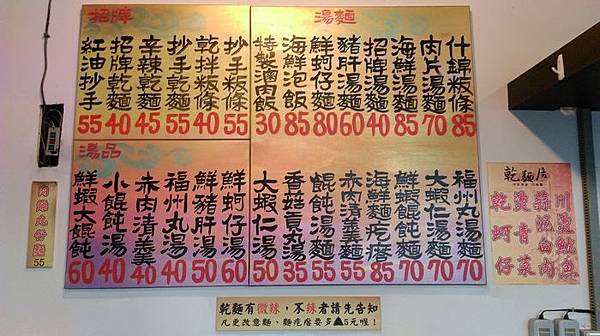 招牌
紅油抄手 55
招牌乾麵 40
辛辣乾麵 45
抄手乾麵 55
乾拌粄條 40
抄手粄條 55
湯麵
特製滷肉飯 30
海鮮泡飯 85
鮮蚵仔麵 80
豬肝湯麵 60
招牌湯麵 40
海鮮湯麵 85
肉片湯麵 70
什錦粄條 85
湯品
鮮蝦大餛飩 60
小餛飩湯 40
赤肉清羹 40
福州丸湯 40
鮮豬肝湯 50
鮮蚵仔湯 60
大蝦仁湯 50
香菇貢丸湯 35
餛飩湯麵 55
赤肉清羹麵 55
海鮮麵疙瘩 85
鮮蝦餛飩麵 70
大蝦仁湯麵 70
福州丸湯麵 70
55
乾麵店
川燙魷魚
蒜泥白肉
燙青菜
乾蚵仔
乾麵有微辣，不辣者請先告知
凡更改意麵、麵疙瘩要多▲5元喔！